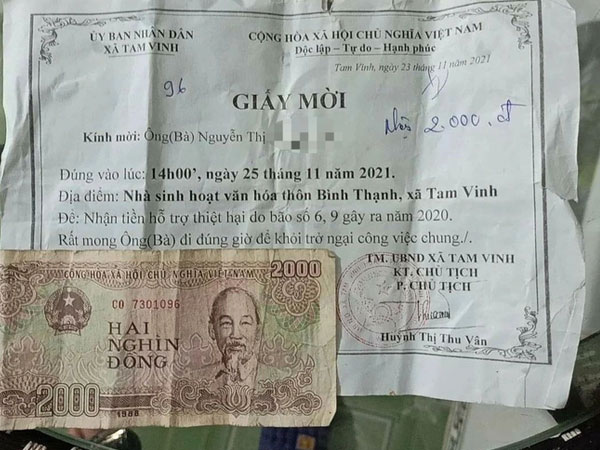 ỦY BAN NHÂN DÂN
XÃ TAM VINH
CỘNG HÒA XÃ HỘI CHỦ NGHĨA VIỆT NAM
Độc lập - Tự do - Hạnh phúc
Tam Vinh, ngày 23 tháng 11 năm 2021
96
GIẤY MỜI
Kính mời: Ông(Bà) Nguyễn Thị
2.000.đ
Đúng vào lúc: 14h00', ngày 25 tháng 11 năm 2021.
Địa điểm: Nhà sinh hoạt văn hóa thôn Bình Thạnh, xã Tam Vinh
Đề: Nhận tiền hỗ trợ thiệt hại do bão số 6, 9 gây ra năm 2020.
Rất mong Ông(Bà) đi đúng giờ để khỏi trở ngại công việc chung./.
TM. UBND XÃ TAM VINH
KT. CHỦ TỊCH
P. CHỦ TỊCH
Huỳnh Thị Thu Vân
CỘNG HÒA XÃ HỘI CHỦ NGHĨA VIỆT NAM
2000
CO 7301096
HAI
NGHÌN
ĐỒNG
2000
1988